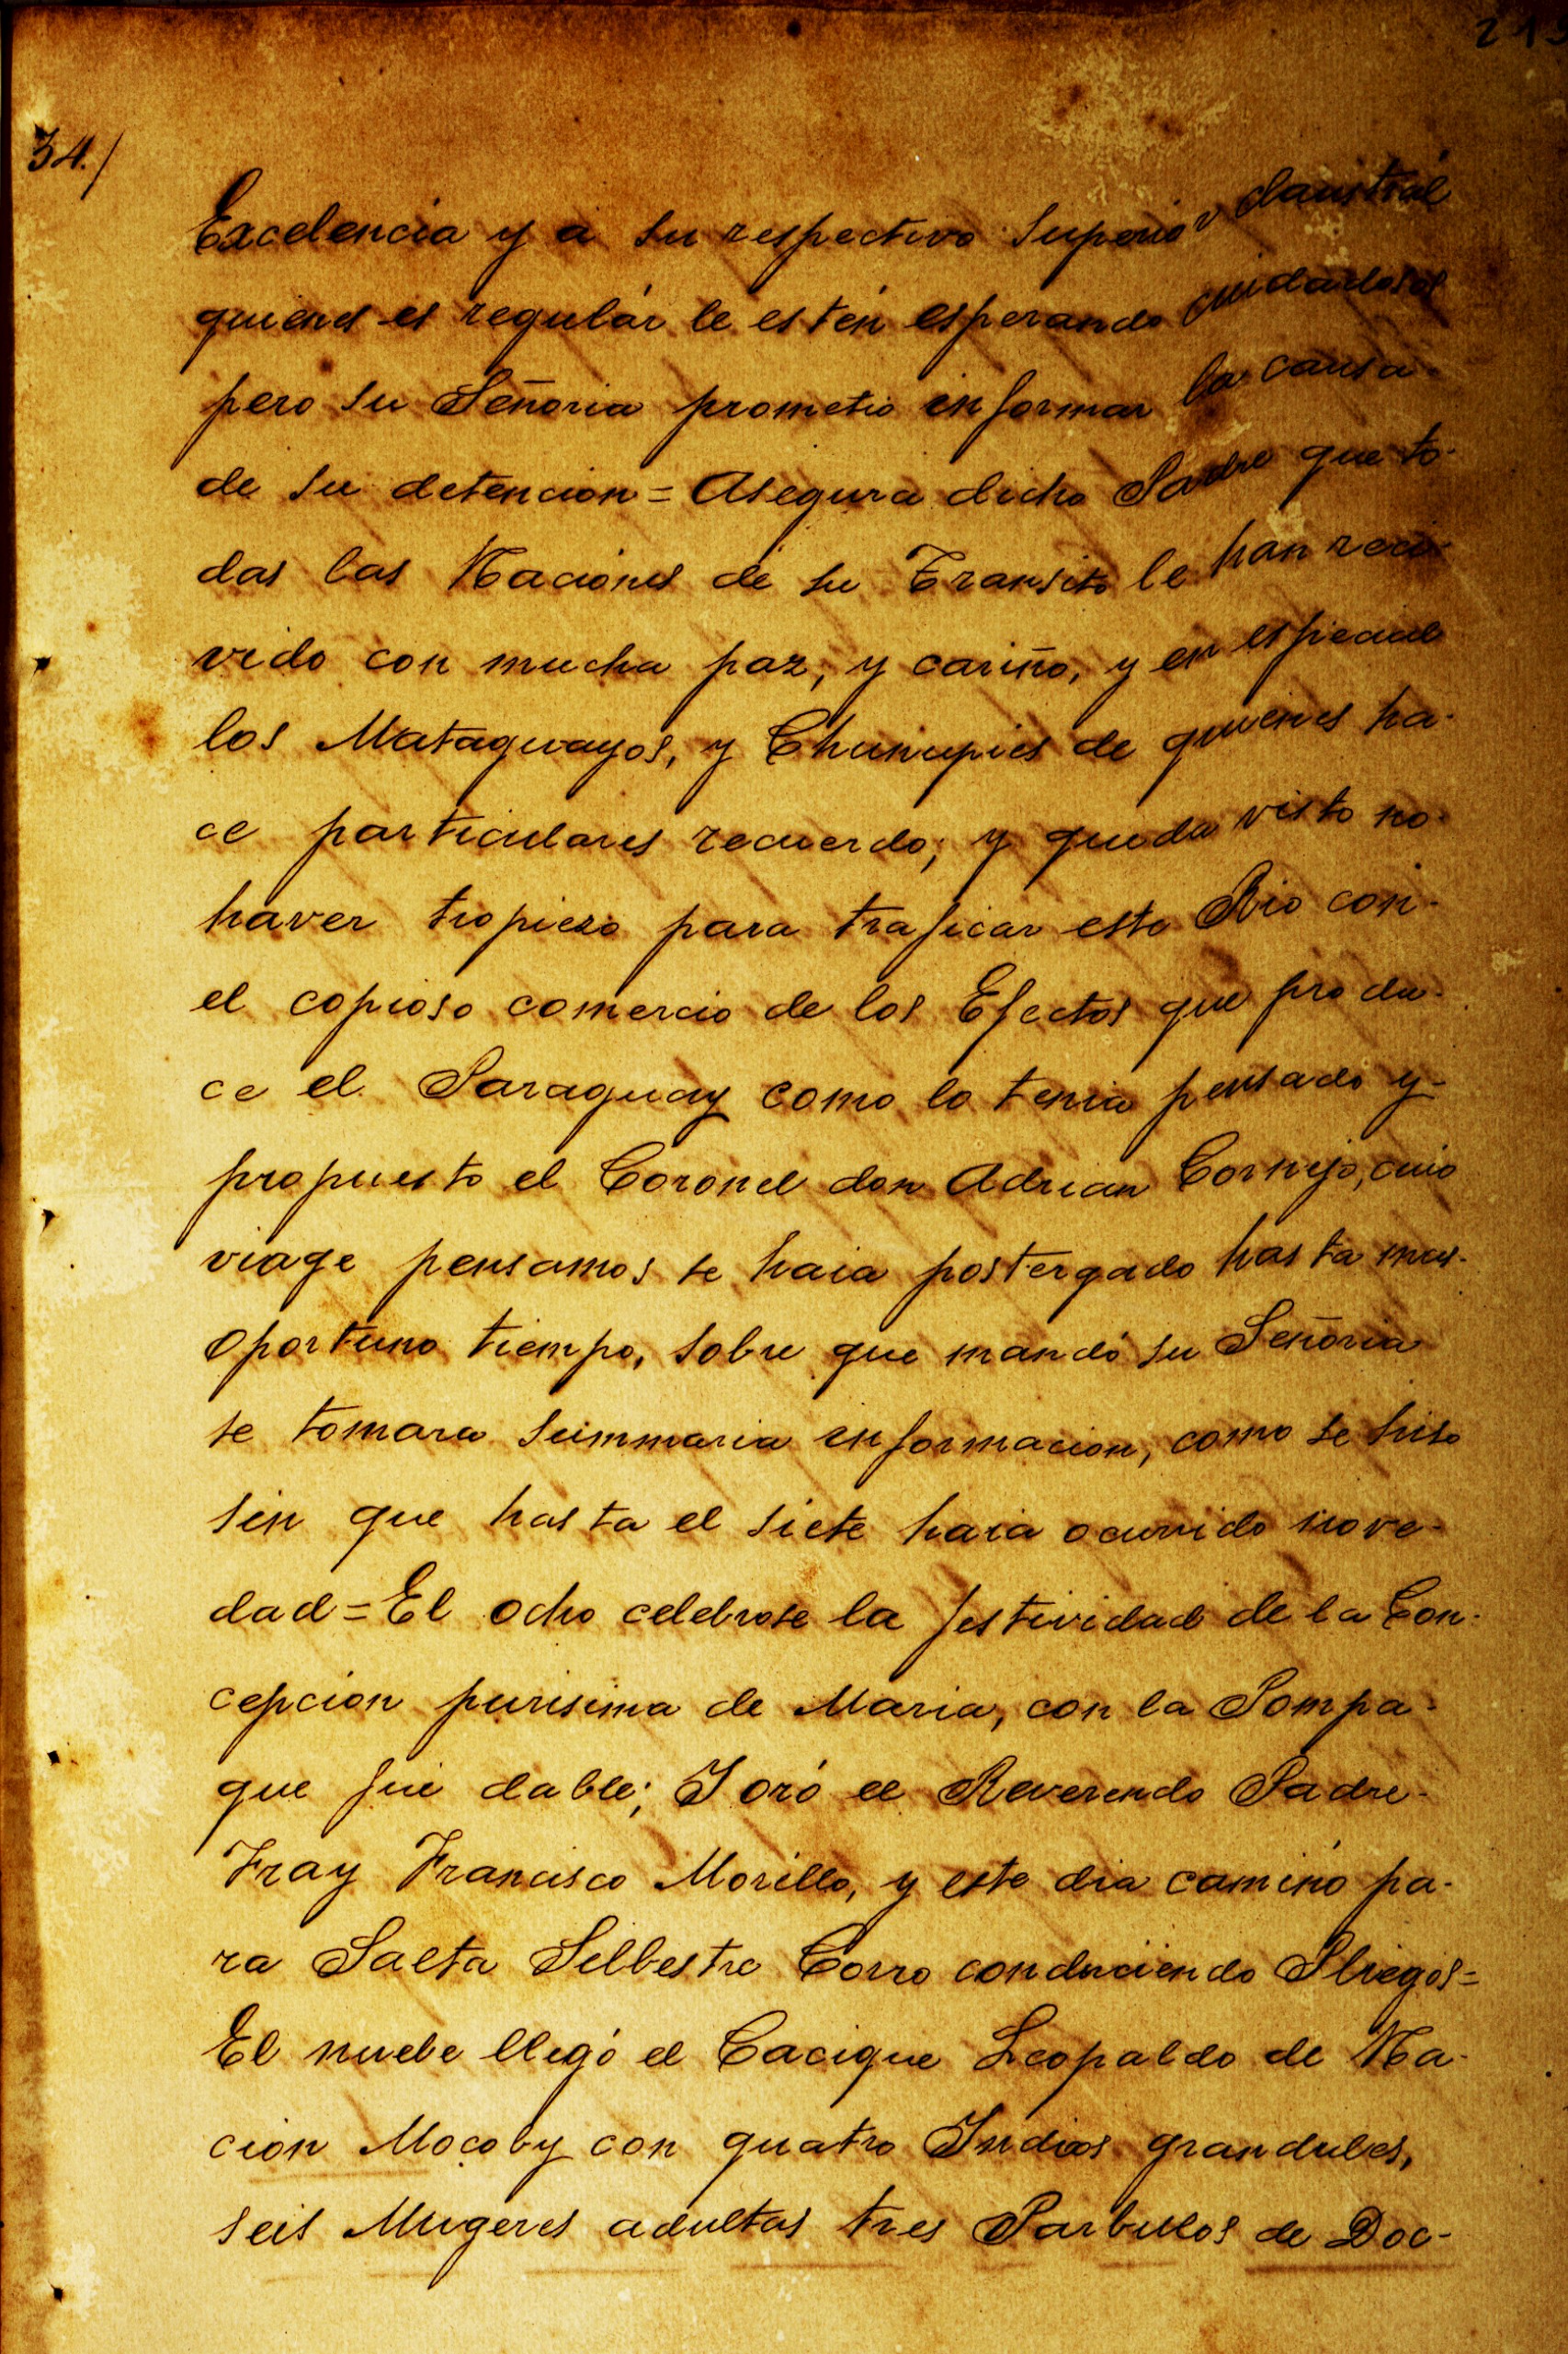 213
34./
Excelencia y á su respectivo Superior claustrál
quienes es regulár le estén esperando cuidadosos
pero su Señoria prometio informar la causa
de su detencion = Asegura dicho Padre que to-
das las Naciones de su Transito le han reci-
vido con mucha paz, y cariño, y en especial
los Mataguayos, y Chunupies de quienes ha-
ce particulares recuerdo; y queda visto no
haver tropiezo para traficar este Rio con
el copioso comercio de los Efectos que produ-
ce el Paraguay como lo tenia pensado y
propuesto el Coronel don Adrian Cornejo, cuio
viage pensamos se haia postergado hasta mas
oportuno tiempo, sobre que mandó su Señoria
se tomara summaria informacion, como se hiso
sin que hasta el siete haia ocurrido nove-
dad = El ocho celebrose la festividad de la Con-
cepcion purisima de Maria, con la Pompa
que fué dable; I oró el Reverendo Padre
Fray Francisco Morillo, y este dia caminó pa-
ra Salta Silbestre Corro conduciendo Pliegos =
El nuebe llegó el Cacique Leopaldo de Na-
cion Mocoby con quatro Indios grandules,
seis Mugeres adultas tres Parbulos de Doc-